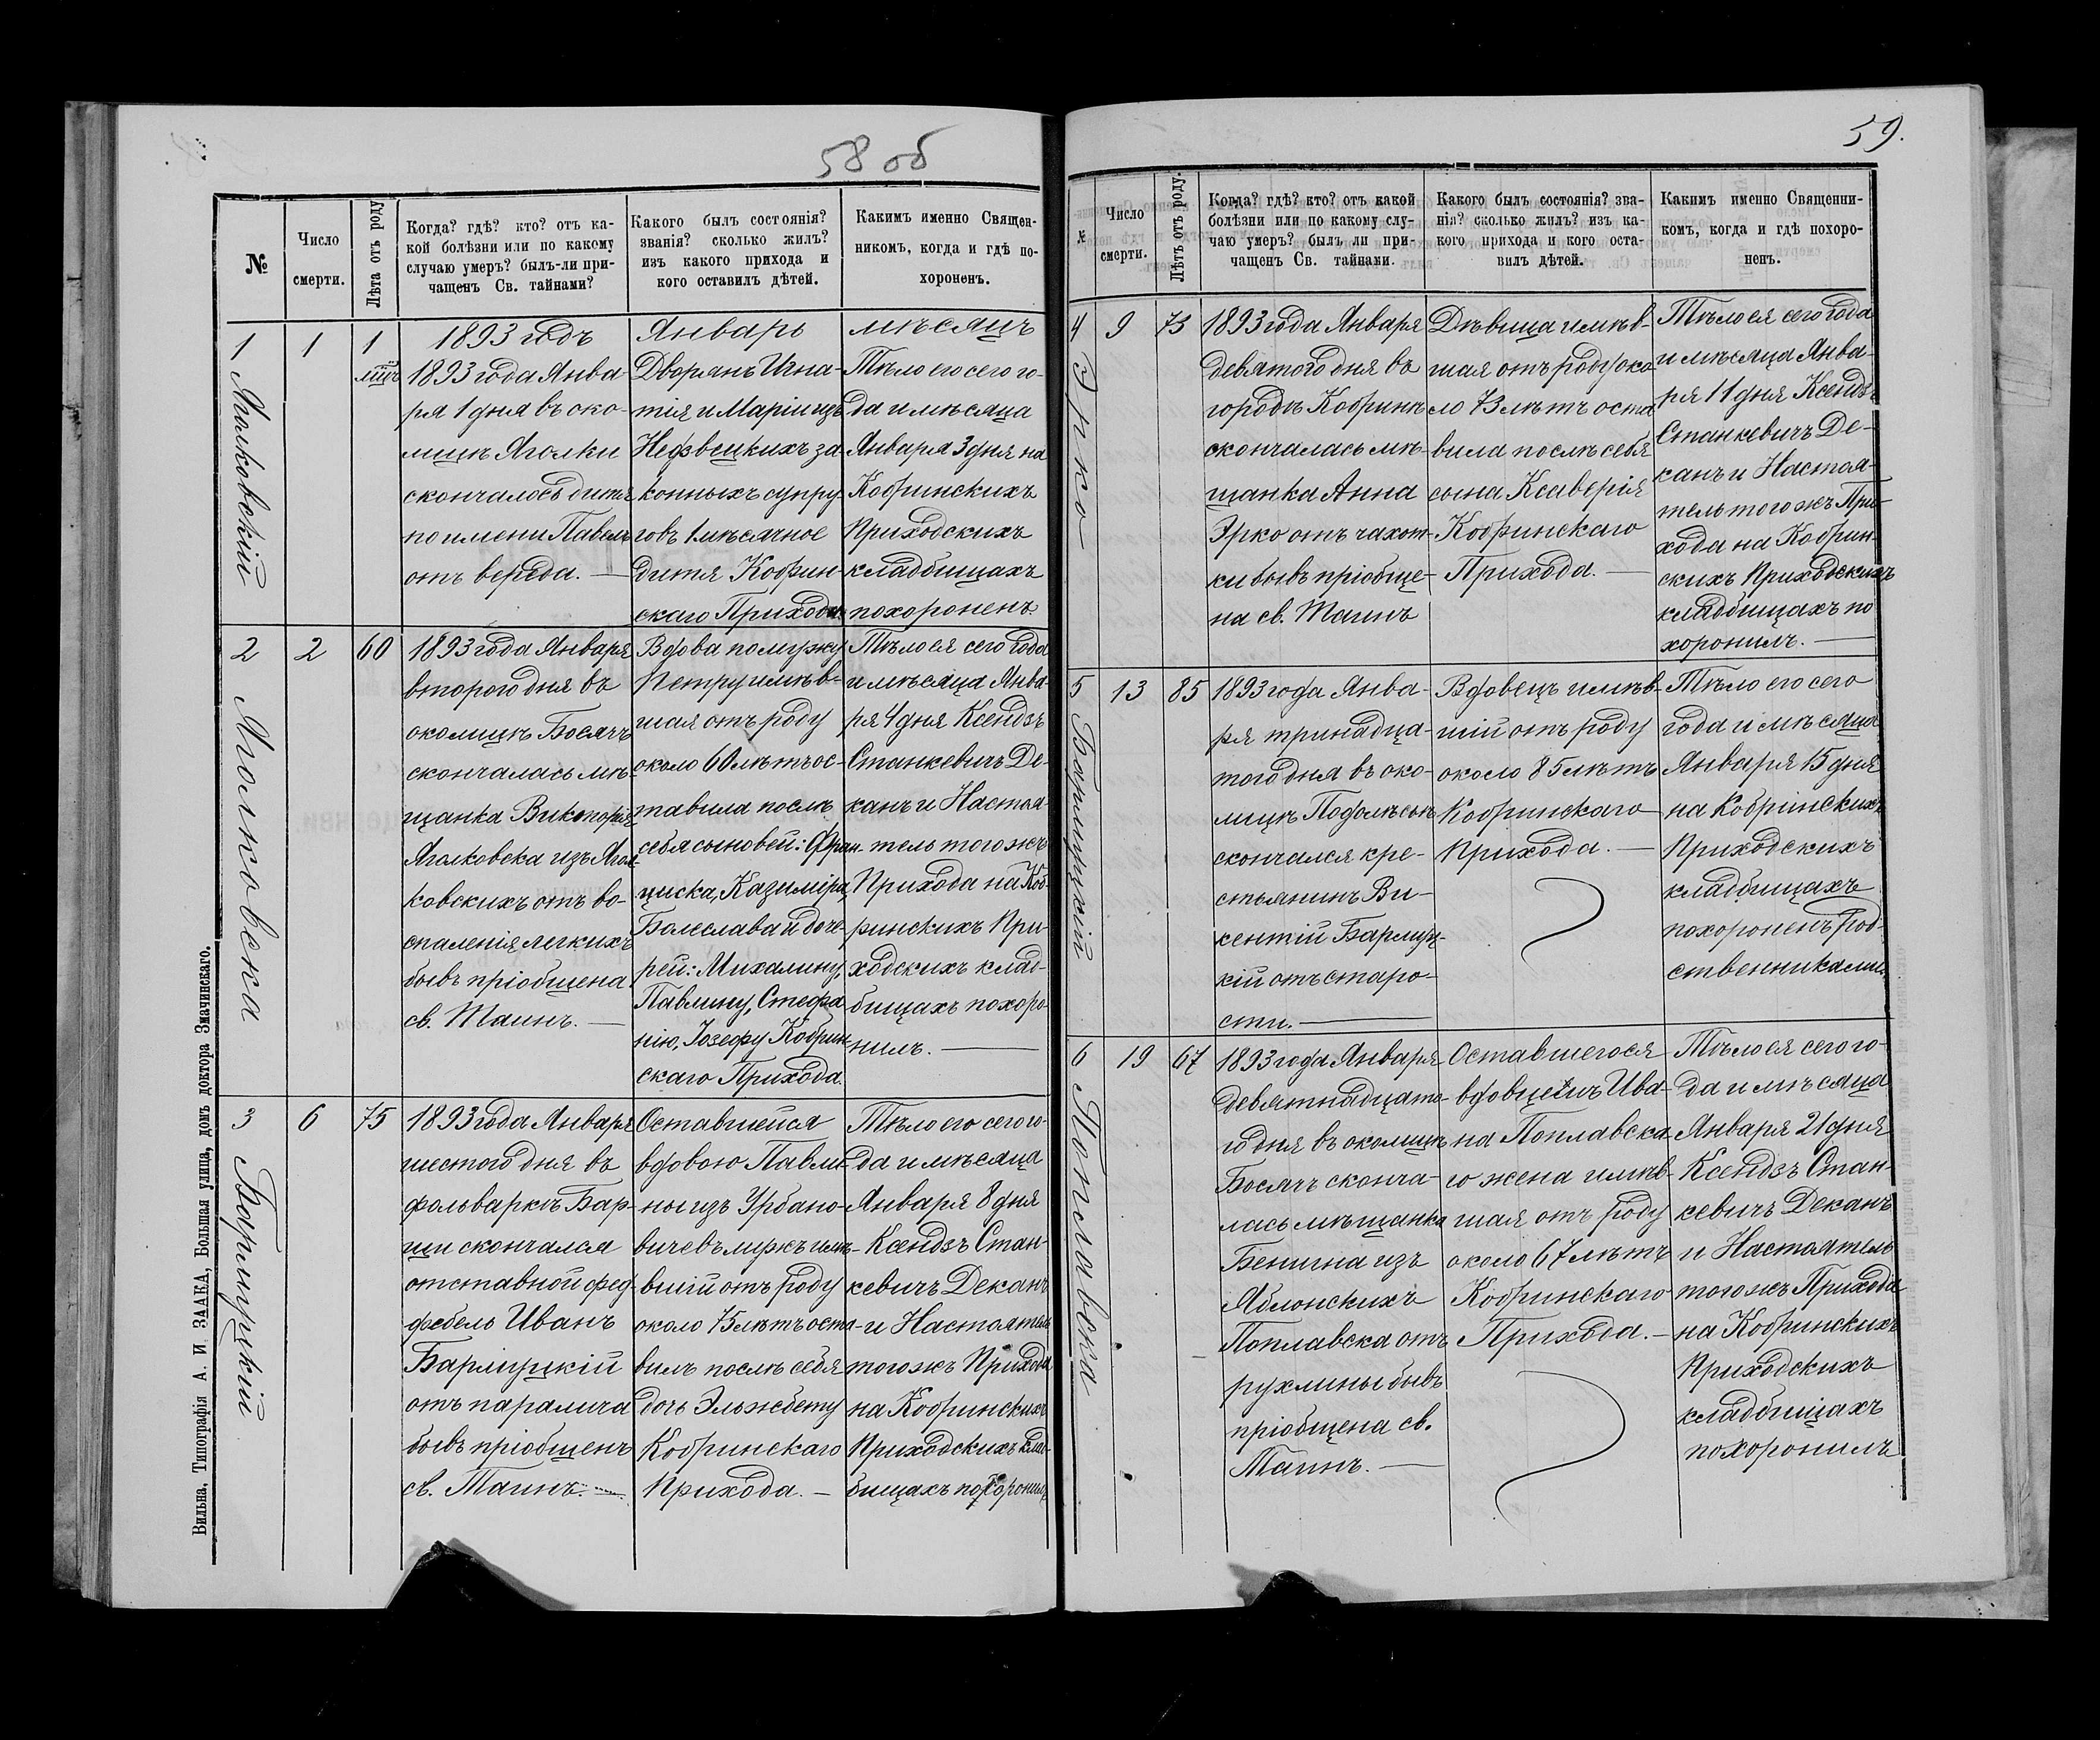 58 об
№
Число
смерти.
Лѣта отъ роду
Когда? гдѣ? кто? отъ ка-
кой болѣзни или по какому
случаю умеръ? былъ-ли при-
чащенъ Св. тайнами?
Какого былъ состоянія?
званія? сколько жилъ?
изъ какого прихода и
кого оставилъ дѣтей.
Какимъ именно Священ-
никомъ, когда и гдѣ по-
хороненъ.
1
Яголковскій
1
1
мѣс
1893 годъ
1893 года Янва-
ря 1 дня въ око-
лицѣ Яголки
скончалось дитя
по имени Павелъ
отъ вереда. —
Январь
Дворянъ Игна-
тія и Маріи изъ
за-
конныхъ супру-
говъ 1 мѣсячное
дитя Кобрин-
скаго Прихода
мѣсяцъ
Тѣло его сего го-
да и мѣсяца
Января 3 дня на
Кобринскихъ
Приходскихъ
кладбищахъ
похороненъ.
2
Яголковска
2
60
1893 года Января
второго дня въ
околицѣ Босячъ
скончалась мѣ-
щанка Викторія
Яголковска изъ Ягол-
ковскихъ отъ во-
спаленія легкихъ
бывъ пріобщена
св. Таинъ. —
Вдова по мужу
Петру имѣв-
шая отъ роду
около 60 лѣтъ ос-
тавила послѣ
себя сыновей: Фран-
циска, Казиміра,
Болеслава и доче-
рей: Михалину,
Павлину, Стефа-
нію, Іозефу Кобрин-
скаго Прихода.
Тѣло ея сего года
и мѣсяца Янва-
ря 4 дня Ксендзъ
Станкевичъ Де-
канъ и Настоя-
тель того жъ
Прихода на Коб-
ринскихъ При-
ходскихъ клад-
бищахъ похоро-
нилъ. —
3
Бармуцкій
6
75
1893 года Января
шестого дня въ
фольваркѣ Бар-
щи скончался
отставной фед-
фебель Иванъ
Бармуцкій
отъ паралича
бывъ пріобщенъ
св. Таинъ. —
Оставшейся
вдовою Павли-
ны изъ Урбано-
вичевъ мужъ имѣ-
вшій отъ роду
около 75 лѣтъ оста-
вилъ послѣ себя
дочь Эльжбету
Кобринскаго
Прихода. —
Тѣло его сего го-
да и мѣсяца
Января 8 дня
Ксендзъ Стан-
кевичъ Деканъ
и Настоятель
того жъ Прихода
на Кобринскихъ
Приходскихъ клад-
бищахъ похоронилъ
Вильна. Типографія А. И. ЗААКА, Большая улица, домъ доктора Змачинскаго.
59.
№
Число
смерти.
Лѣтъ отъ роду.
Когда? гдѣ? кто? отъ какой
болѣзни или по какому слу-
чаю умеръ? былъ ли при-
чащенъ Св. тайнами.
Какого былъ состоянія? зва-
нія? сколько жилъ? изъ ка-
кого прихода и кого оста-
вилъ дѣтей.
Какимъ именно Священни-
комъ, когда и гдѣ похоро-
ненъ.
4
Эрко
9
73
1893 года Января
девятого дня въ
городѣ Кобринѣ
скончалась мѣ-
щанка Анна
Эрко отъ чахот-
ки бывъ пріобще-
на св. Таинъ
Дѣвица имѣв-
шая отъ роду око-
ло 73 лѣтъ оста-
вила послѣ себя
сына Ксаверія
Кобринскаго
Прихода. —
Тѣло ея сего года
и мѣсяца Янва-
ря 11 дня Ксендзъ
Станкевичъ Де-
канъ и Настоя-
тель того жъ При-
хода на Кобрин-
скихъ Приходскихъ
кладбищахъ по
хоронилъ. —
5
Бармуцкій
13
85
1893 года Янва-
ря тринадца-
того дня въ око-
лицѣ Подолѣсьѣ
скончался кре-
стьянинъ Ви-
кентій Бармуц-
кій отъ старо-
сти. —
Вдовецъ имѣв-
шій отъ роду
около 85 лѣтъ
Кобринскаго
Прихода. —
Тѣло его сего
года и мѣсяца
Января 15 дня
на Кобрінскихъ
Приходскихъ
кладбищахъ
похороненъ род-
ственниками.
6
Поплавска
19
67
1893 года Января
девятнадцато-
го дня въ околицѣ
Босячъ сконча-
лась мѣщанка
Бенигна изъ
Яблонскихъ
Поплавска отъ
рухлины бывъ
пріобщена св.
Таинъ. —
Оставшегося
вдовцемъ Ива-
на Поплавска-
го жена имѣв-
шая отъ роду
около 67 лѣтъ
Кобринскаго
Прихода. —
Тѣло ея сего го-
да и мѣсяца
Января 21 дня
Ксендзъ Стан-
кевичъ Деканъ
и Настоятель
того жъ Прихода
на Кобринскихъ
Приходскихъ
кладбищахъ
похоронилъ